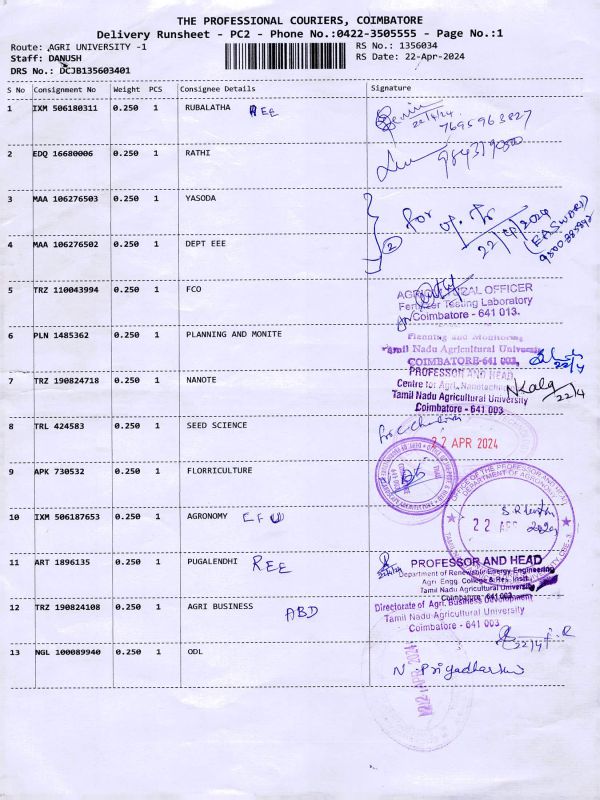 THE PROFESSIONAL COURIERS, COIMBATORE
Delivery Runsheet - PC2 - Phone No.:0422-3505555 - Page No.:1
Route: AGRI UNIVERSITY -1 RS No.: 1356034
Staff: DANUSH RS Date: 22-Apr-2024
DRS No.: DCJB135603401
S No Consignment No Weight PCS Consignee Details Signature
1 IXM 506180311 0.250 1 RUBALATHA REE
22/4/24
7695963827
2 EDQ 16680006 0.250 1 RATHI
3 MAA 106276503 0.250 1 YASODA
for
22/4/2024
(EASWARI)
4 MAA 106276502 0.250 1 DEPT EEE
2
5 TRZ 110043994 0.250 1 FCO
AGRICULTURAL OFFICER
Fertilizer Testing Laboratory
Coimbatore - 641 013.
6 PLN 1485362 0.250 1 PLANNING AND MONITE
Planning and Monitoring
Tamil Nadu Agricultural University
COIMBATORE-641 003.
22/4
7 TRZ 190824718 0.250 1 NANOTE
PROFESSOR AND HEAD
Centre for Agri. Nanotechnology
Tamil Nadu Agricultural University
Coimbatore - 641 003
22/4
8 TRL 424583 0.250 1 SEED SCIENCE
22 APR 2024
9 APK 730532 0.250 1 FLORRICULTURE
OFFICE OF THE PROFESSOR AND HEAD
DEPARTMENT OF AGRONOMY
10 IXM 506187653 0.250 1 AGRONOMY
22 APR 2024
11 ART 1896135 0.250 1 PUGALENDHI REE
PROFESSOR AND HEAD
Department of Renewable Energy Engineering
Agri. Engg. College & Res. Instt.
Tamil Nadu Agricultural University
Coimbatore - 641 003
12 TRZ 190824108 0.250 1 AGRI BUSINESS ABD
Directorate of Agri. Business Development
Tamil Nadu Agricultural University
Coimbatore - 641 003
22/4
13 NGL 100089940 0.250 1 ODL
N. Priyadharshini